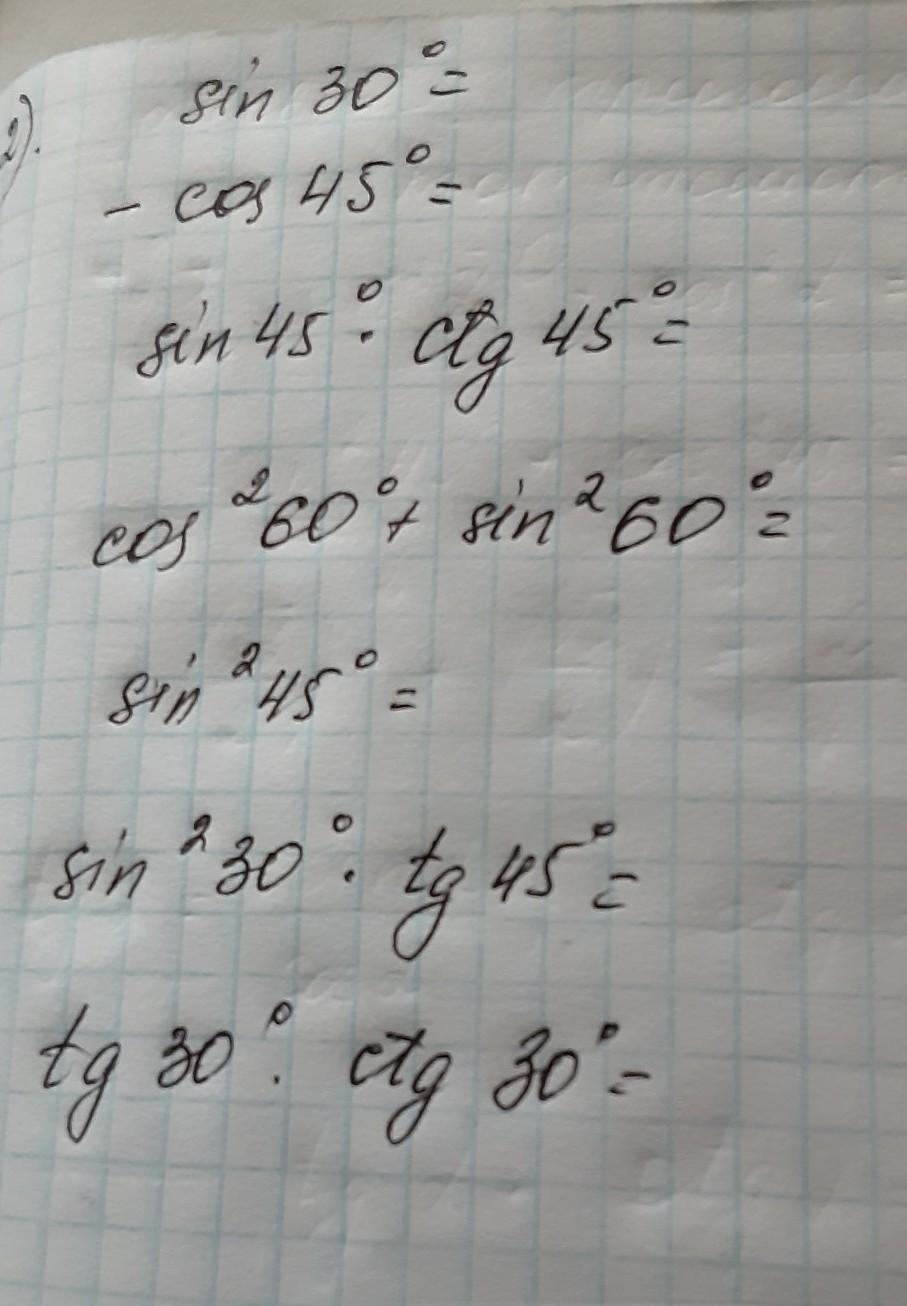 2). sin 30° =
- cos 45° =
sin 45° · ctg 45° =
cos² 60° + sin² 60° =
sin² 45° =
sin² 30° · tg 45° =
tg 30° · ctg 30° =